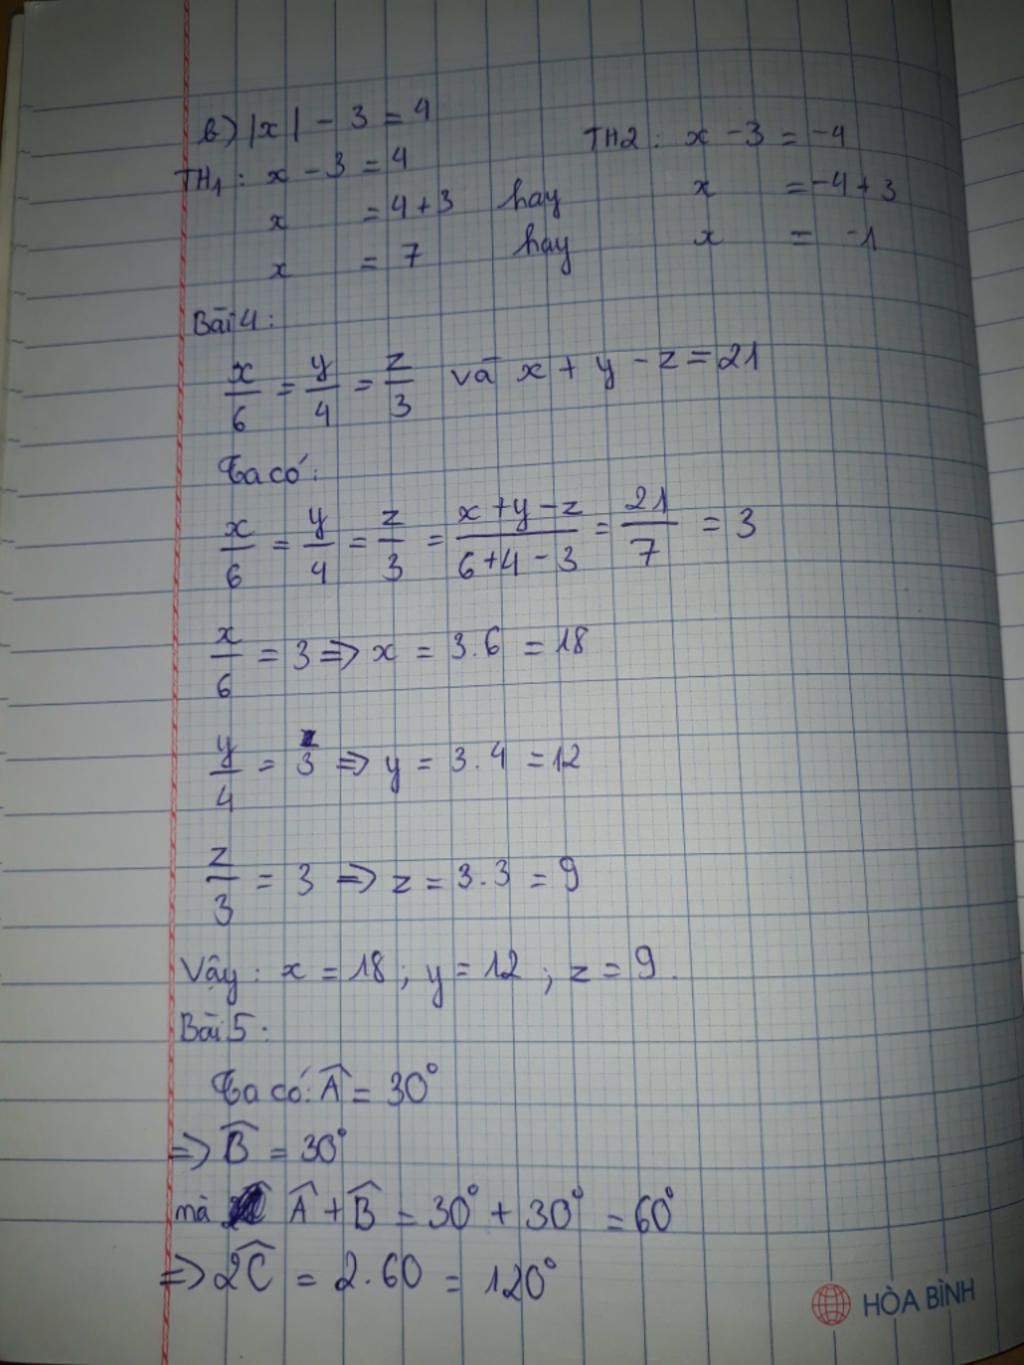 b) |x| - 3 = 4
TH1: x - 3 = 4 TH2: x - 3 = -4
x = 4 + 3 hay x = -4 + 3
x = 7 hay x = -1
Bài 4:
x/6 = y/4 = z/3 và x + y - z = 21
Ta có:
x/6 = y/4 = z/3 = (x + y - z)/(6 + 4 - 3) = 21/7 = 3
x/6 = 3 => x = 3.6 = 18
y/4 = 3 => y = 3.4 = 12
z/3 = 3 => z = 3.3 = 9
Vậy: x = 18; y = 12; z = 9.
Bài 5:
Ta có: Â = 30°
=> B̂ = 30°
mà Â + B̂ = 30° + 30° = 60°
=> 2Ĉ = 2.60 = 120°
HÒA BÌNH